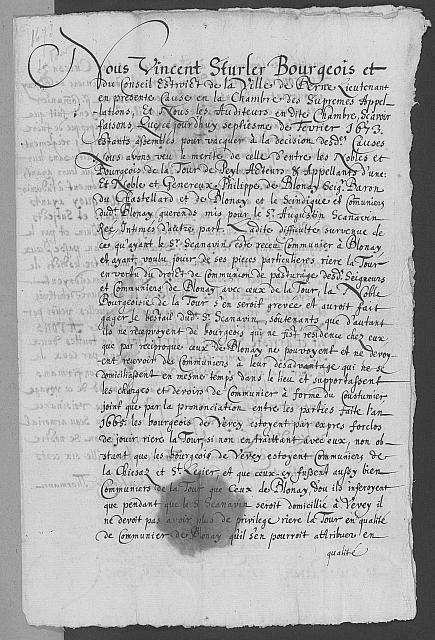 1673
Nous Vincent Sturler Bourgeois et
du Conseil Estroict de la Ville de Berne Lieutenant
en presente Cause en la Chambre des Supremes Appel-
lations, Et Nous les Auditeurs en dite Chambre, Scavoir
faisons Que ce jourdhuy septiesme de Fevrier 1673.
estants assemblés pour vacquer à la decision desd. Causes
Nous avons veu le merite de celle d'entre les Nobles et
Bourgeois de la Tour de Peyl Acteurs & Appellants d'une:
Et Noble et Genereux Philippe de Blonay Seigr. Baron
du Chastellard et de Blonay, et le Scindique et Comuniers
dud. Blonay querends mis pour le Sr. Augustin Scanavin
Rees Intimés d'autre part. Ladite difficulté survenue de
ce qu'ayant le Sr. Scanavin esté receu Communier à Blonay
et ayant voulu jouir de ses pieces particulieres riere la Tour
en vertu du droict de Communion de pasturage desd. Seigneurs
et Communiers de Blonay avec ceux de la Tour, la Noble
Bourgeoisie de la Tour s'en seroit grevée et auroit fait
gager le bestail dud. Sr. Scanavin, soutenants que d'autant
ils ne reçoyvent de bourgeois qui ne fist residence chez eux
que par reciproque ceux de Blonay ne pouvoyent et ne devoy-
ent recevoir des Communiers à leur desavantage qui ne se
domicilliassent en mesme temps dans le lieu et supportassent
les charges et devoirs de Communier à forme du Coustumier
joint que par la prononciation entre les parties faite l'an
1665. les bourgeois de Vevey estoyent par expres forclos
de jouir riere la Tour si non en traittant avec eux, non ob-
stant que les bourgeois de Vevey estoyent Communiers de
la Chiesaz et St. Legier et que ceux-cy fussent aussy bien
Communiers de la Tour que ceux de Blonay, dou ils inferoyent
que pendant que le Sr. Scanavin seroit domicillié à Vevey il
ne devoit pas avoir plus de privilege riere la Tour en qualité
de Communier de Blonay qu'il s'en pourroit attribuer en
qualité